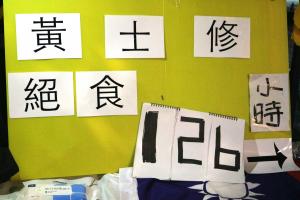 黃士修
絕食
126
小時
→